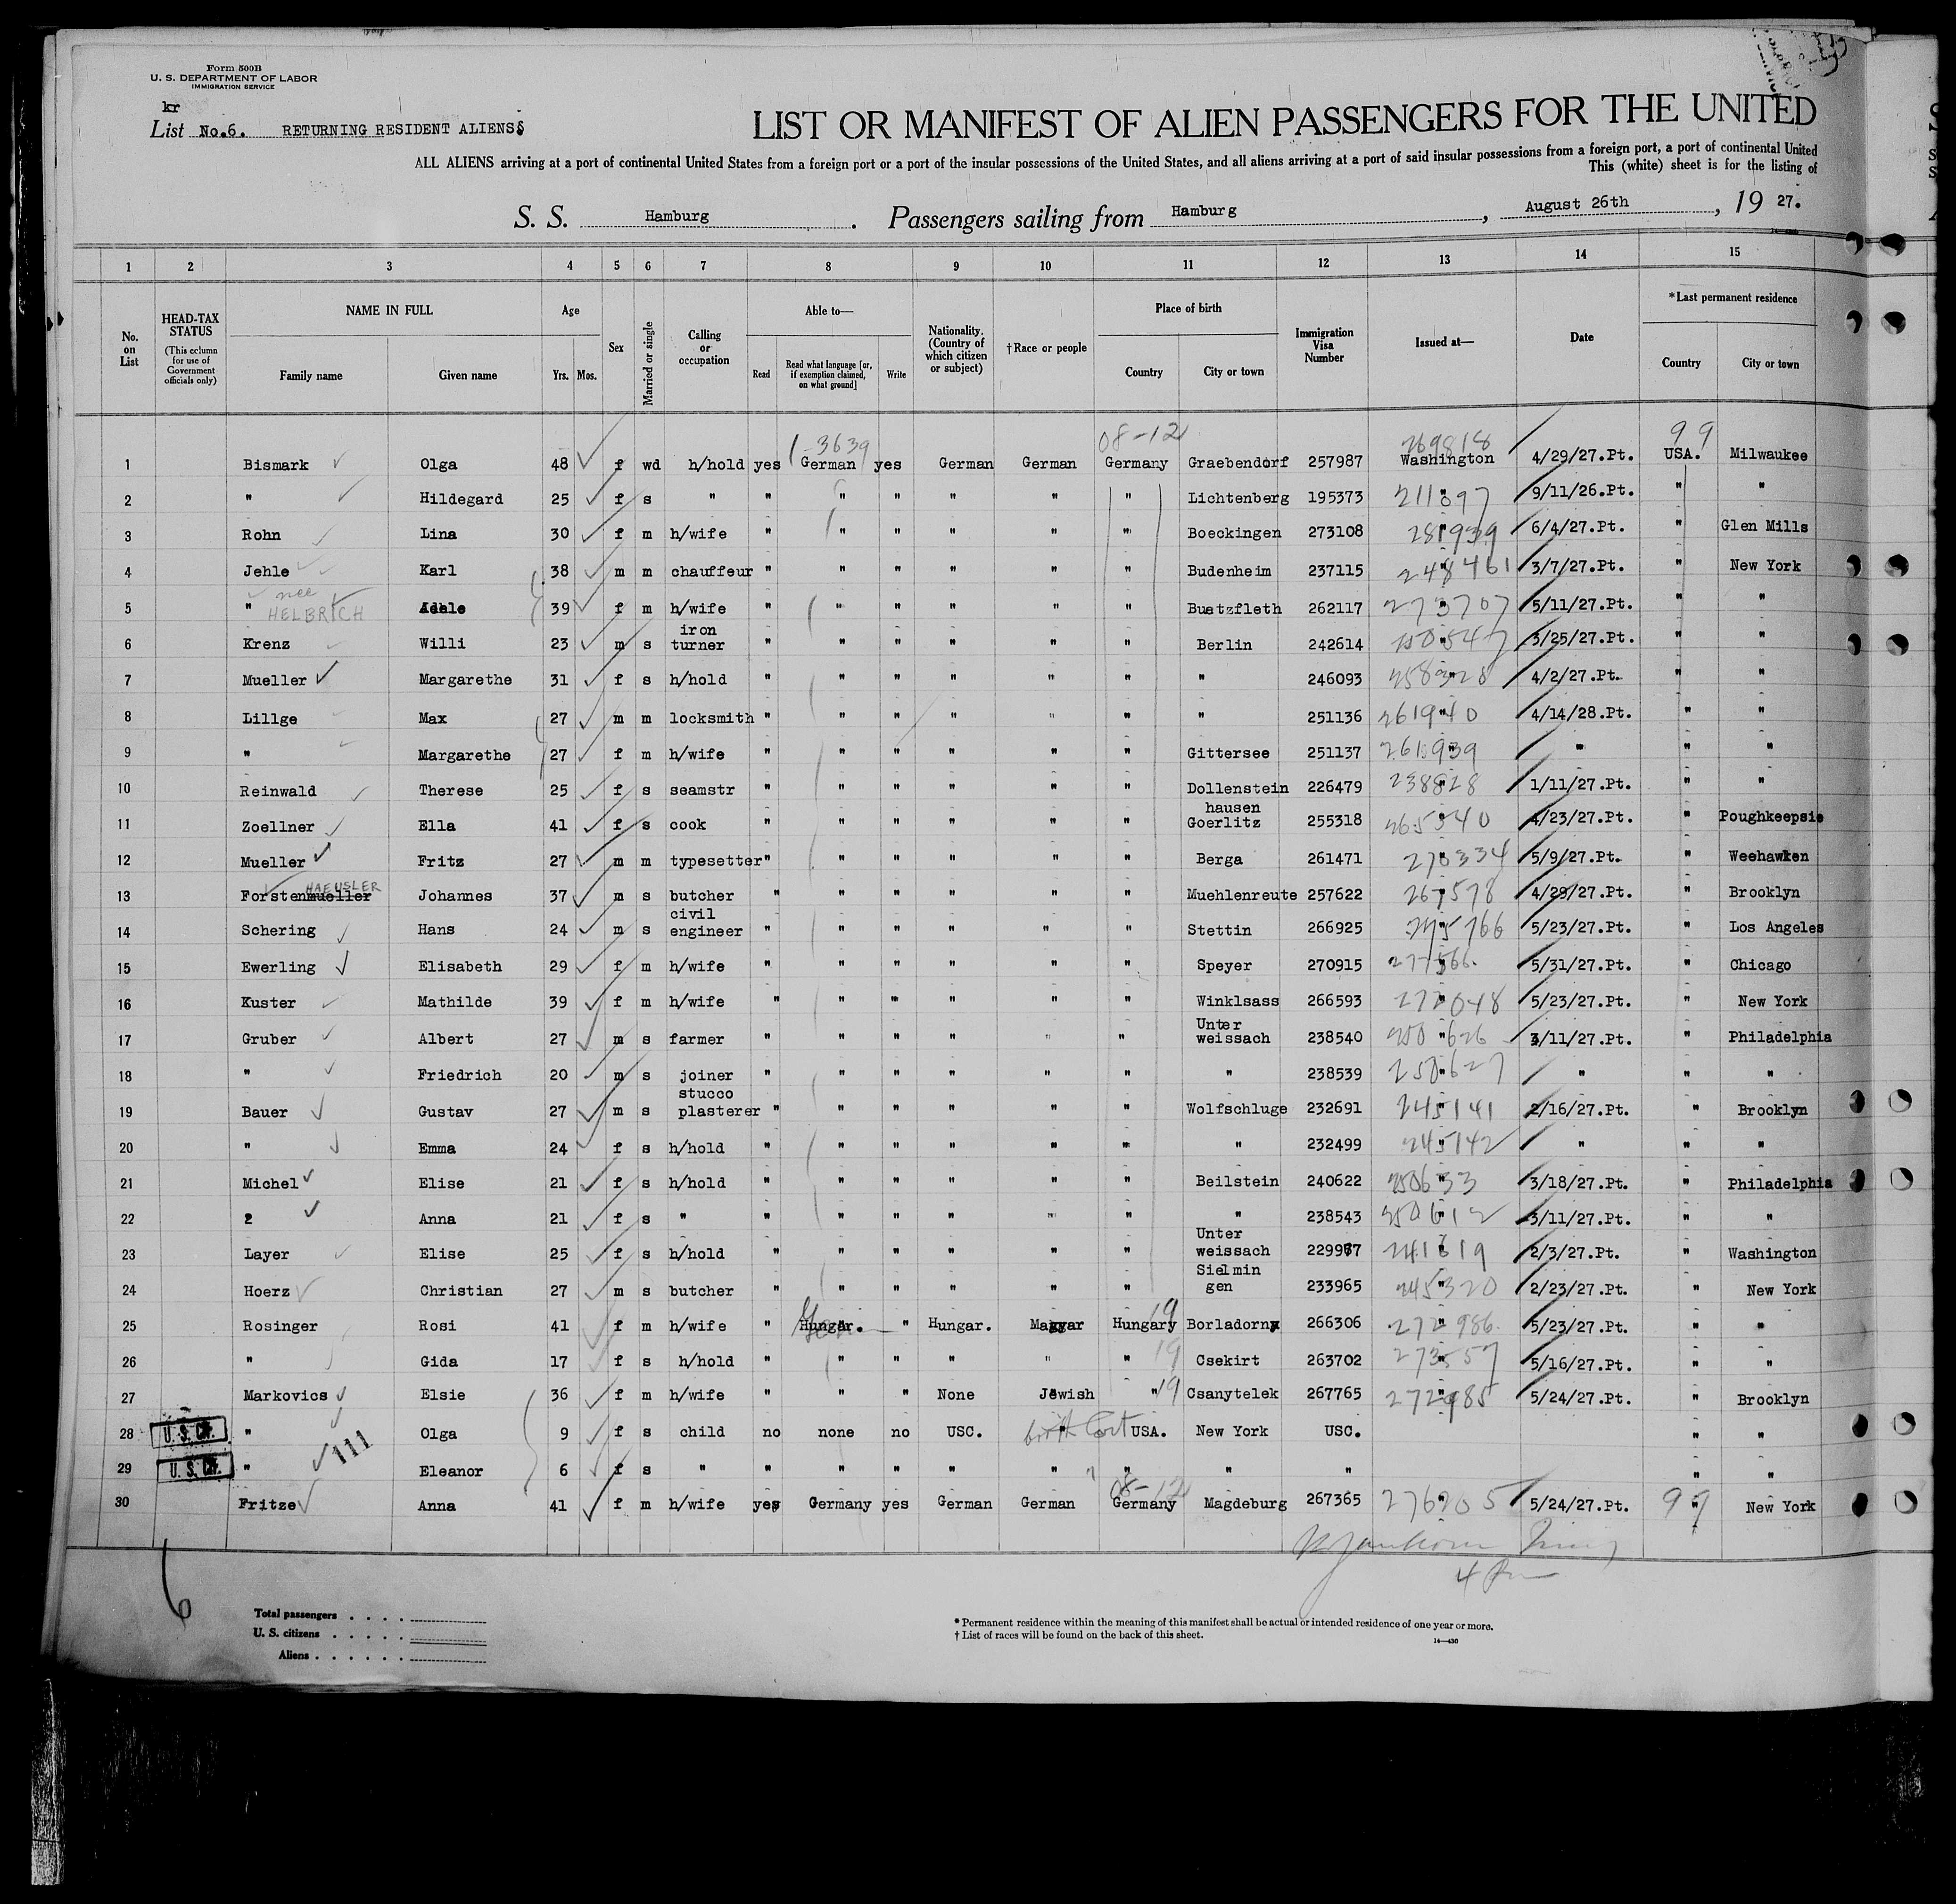 Form 500B
U. S. DEPARTMENT OF LABOR
IMMIGRATION SERVICE
kr
List No.6. RETURNING RESIDENT ALIENS
LIST OR MANIFEST OF ALIEN PASSENGERS FOR THE UNITED
ALL ALIENS arriving at a port of continental United States from a foreign port or a port of the insular possessions of the United States, and all aliens arriving at a port of said insular possessions from a foreign port, a port of continental United
This (white) sheet is for the listing of
S. S. Hamburg . Passengers sailing from Hamburg , August 26th , 19 27.
1 2 3 4 5 6 7 8 9 10 11 12 13 14 15
No. on List
HEAD-TAX STATUS (This column for use of Government officials only)
NAME IN FULL Family name Given name
Age Yrs. Mos.
Sex
Married or single
Calling or occupation
Able to— Read Read what language [or, if exemption claimed, on what ground] Write
Nationality. (Country of which citizen or subject)
†Race or people
Place of birth Country City or town
Immigration Visa Number
Issued at—
Date
*Last permanent residence Country City or town
1-3639 08-12 269818 99
1 Bismark Olga 48 f wd h/hold yes German yes German German Germany Graebendorf 257987 Washington 4/29/27.Pt. USA. Milwaukee
2 " Hildegard 25 f s " " " " " " " Lichtenberg 195373 " 211897 9/11/26.Pt. " "
3 Rohn Lina 30 f m h/wife " " " " " " Boeckingen 273108 " 281939 6/4/27.Pt. " Glen Mills
4 Jehle Karl 38 m m chauffeur " " " " " " Budenheim 237115 " 248461 3/7/27.Pt. " New York
5 " nee HELBRICH Adele 39 f m h/wife " " " " " " Buetzfleth 262117 " 273707 5/11/27.Pt. " "
6 Krenz Willi 23 m s iron turner " " " " " " Berlin 242614 " 3/25/27.Pt. " "
7 Mueller Margarethe 31 f s h/hold " " " " " " " 246093 " 258328 4/2/27.Pt. " "
8 Lillge Max 27 m m locksmith " " " " " " " 251136 " 261940 4/14/28.Pt. " "
9 " Margarethe 27 f m h/wife " " " " " " Gittersee 251137 " 261939 " " "
10 Reinwald Therese 25 f s seamstr " " " " " " Dollenstein 226479 " 238828 1/11/27.Pt. " "
11 Zoellner Ella 41 f s cook " " " " " " hausen Goerlitz 255318 " 265340 4/23/27.Pt. " Poughkeepsie
12 Mueller Fritz 27 m m typesetter " " " " " " Berga 261471 " 270334 5/9/27.Pt. " Weehawken
13 Forstenmueller HAEUSLER Johannes 37 m s butcher " " " " " " Muehlenreute 257622 " 267578 4/29/27.Pt. " Brooklyn
14 Schering Hans 24 m s civil engineer " " " " " " Stettin 266925 " 5/23/27.Pt. " Los Angeles
15 Ewerling Elisabeth 29 f m h/wife " " " " " " Speyer 270915 " 277566 5/31/27.Pt. " Chicago
16 Kuster Mathilde 39 f m h/wife " " " " " " Winklsass 266593 " 272048 5/23/27.Pt. " New York
17 Gruber Albert 27 m s farmer " " " " " " Unter weissach 238540 " 250626 3/11/27.Pt. " Philadelphia
18 " Friedrich 20 m s joiner " " " " " " " 238539 " 250627 " " "
19 Bauer Gustav 27 m s stucco plasterer " " " " " " Wolfschluge 232691 " 245141 2/16/27.Pt. " Brooklyn
20 " Emma 24 f s h/hold " " " " " " " 232499 " 245142 " " "
21 Michel Elise 21 f s h/hold " " " " " " Beilstein 240622 " 250633 3/18/27.Pt. " Philadelphia
22 2 Anna 21 f s " " " " " " " " 238543 " 250612 3/11/27.Pt. " "
23 Layer Elise 25 f s h/hold " " " " " " Unter weissach 229987 " 241819 2/3/27.Pt. " Washington
24 Hoerz Christian 27 m s butcher " " " " " " Sielmin gen 233965 " 245320 2/23/27.Pt. " New York
25 Rosinger Rosi 41 f m h/wife " Hungar. " Hungar. Magyar Hungary 19 Borladorny 266306 " 272986 5/23/27.Pt. " "
26 " Gida 17 f s h/hold " " " " " " 19 Csekirt 263702 " 273557 5/16/27.Pt. " "
27 Markovics Elsie 36 f m h/wife " " " None Jewish " 19 Csanytelek 267765 " 272985 5/24/27.Pt. " Brooklyn
28 U.S. CIT. " Olga 9 f s child no none no USC. " birth Cert USA. New York USC. " "
29 U.S. CIT. " 111 Eleanor 6 f s " " " " " " " " " " "
30 Fritze Anna 41 f m h/wife yes Germany yes German German 08-12 Germany Magdeburg 267365 " 276205 5/24/27.Pt. 99 " New York
4 Pm
6
Total passengers
U. S. citizens
Aliens
* Permanent residence within the meaning of this manifest shall be actual or intended residence of one year or more.
† List of races will be found on the back of this sheet.
14—430